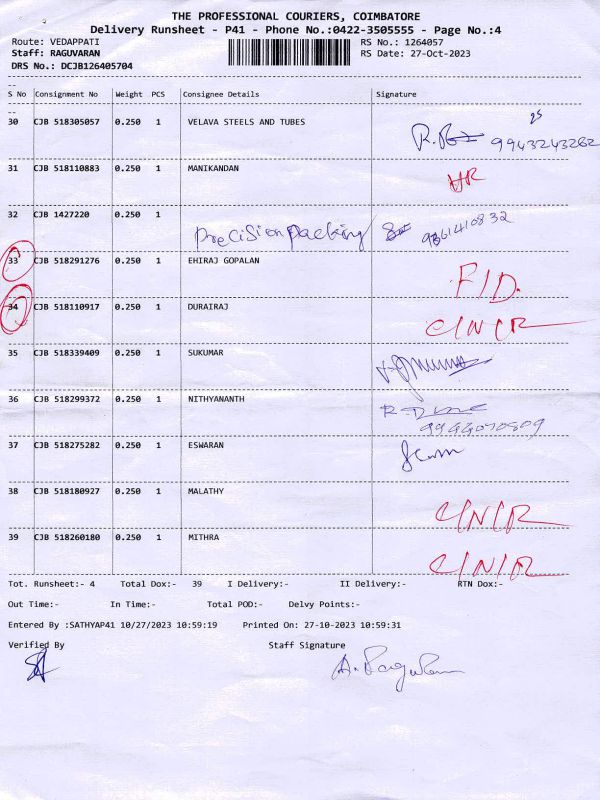 THE PROFESSIONAL COURIERS, COIMBATORE
Delivery Runsheet - P41 - Phone No.:0422-3505555 - Page No.:4
Route: VEDAPPATI RS No.: 1264057
Staff: RAGUVARAN RS Date: 27-Oct-2023
DRS No.: DCJB126405704
S No Consignment No Weight PCS Consignee Details Signature
30 CJB 518305057 0.250 1 VELAVA STEELS AND TUBES
9943243262
31 CJB 518110883 0.250 1 MANIKANDAN
32 CJB 1427220 0.250 1 Precision packing
33 CJB 518291276 0.250 1 EHIRAJ GOPALAN F/D.
34 CJB 518110917 0.250 1 DURAIRAJ C/N/R
35 CJB 518339409 0.250 1 SUKUMAR
36 CJB 518299372 0.250 1 NITHYANANTH
37 CJB 518275282 0.250 1 ESWARAN
38 CJB 518180927 0.250 1 MALATHY C/N/R
39 CJB 518260180 0.250 1 MITHRA C/N/R
Tot. Runsheet:- 4 Total Dox:- 39 I Delivery:- II Delivery:- RTN Dox:-
Out Time:- In Time:- Total POD:- Delvy Points:-
Entered By :SATHYAP41 10/27/2023 10:59:19 Printed On: 27-10-2023 10:59:31
Verified By Staff Signature